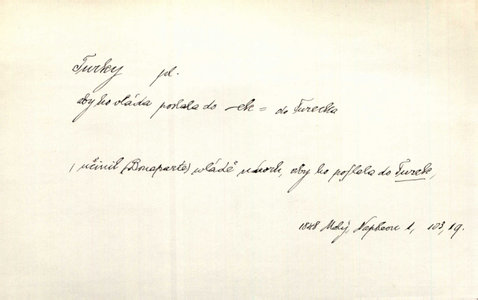 Turky pl.
aby ho vláda poslala do -ek = do Turecka
učinil (Bonaparte) vládě návrh, aby ho poſlala do Turek,
1848 Malý, Napoleon 1, 103, 19.